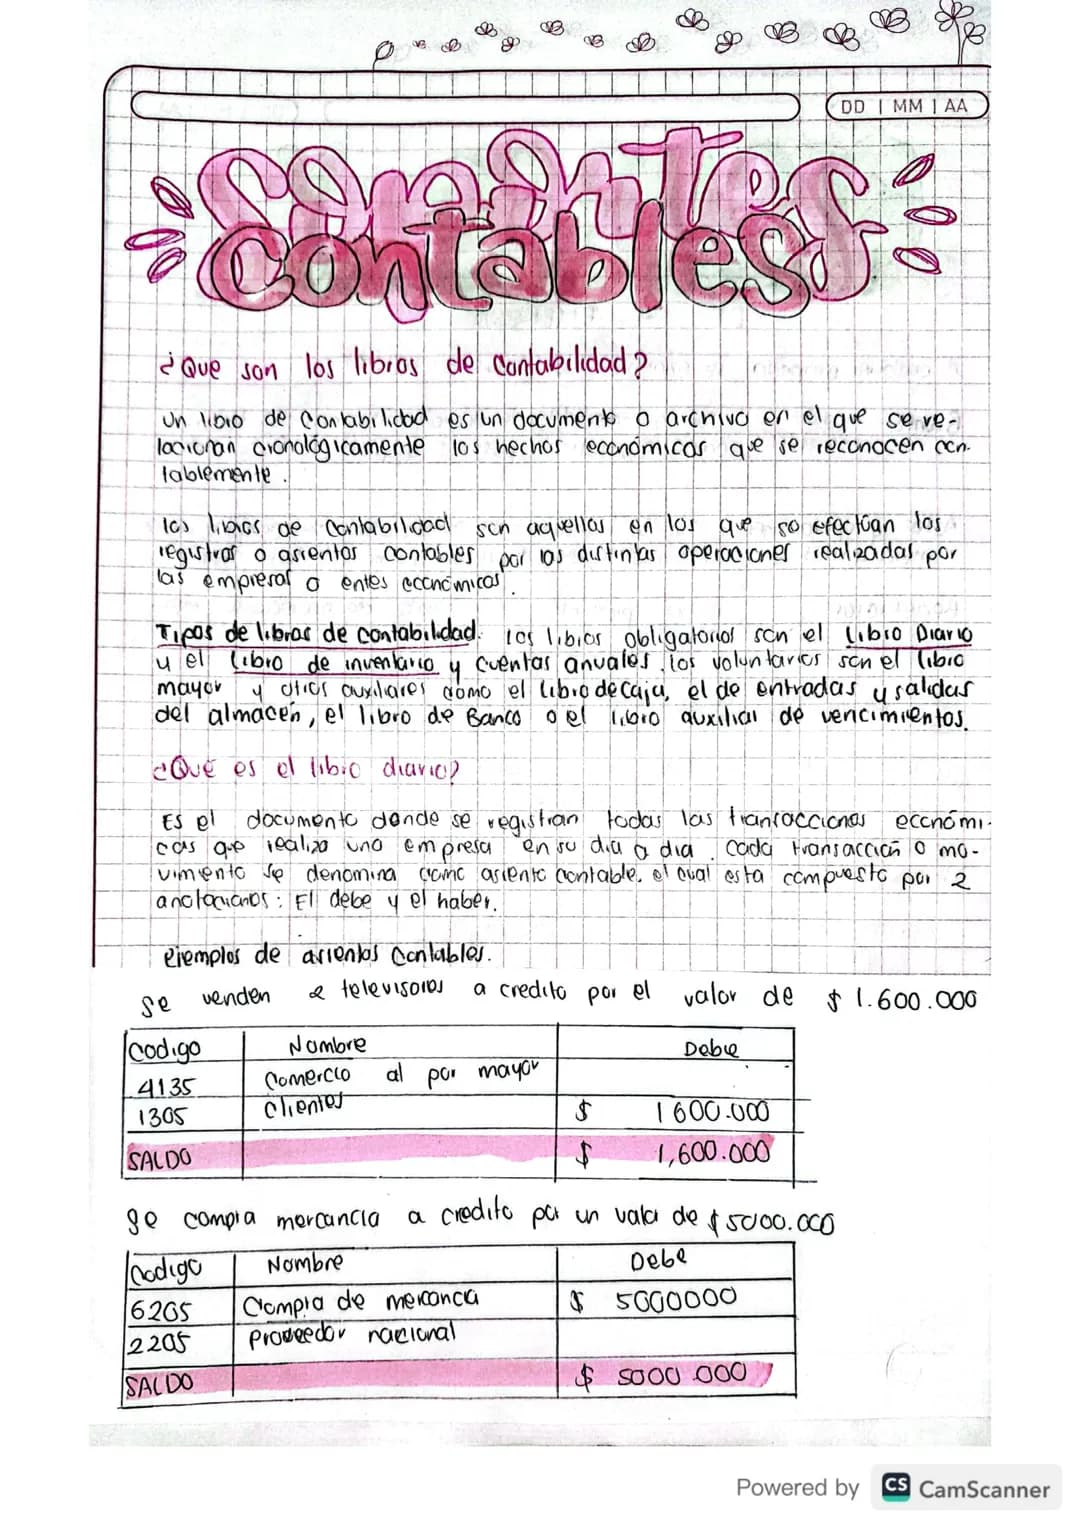 DD | MM | AA
Soportes
contables
¿Que son los libros de Contabilidad?
Un libro de Contabilidad es un documento o archivo en el que se re-
lacionan cronológicamente los hechos económicos que se reconocen con-
tablemente.
los libros de Contabilidad son aquellos en los que se efectúan los
registros o asientos contables por las distintas operaciones realizadas por
las empresas o entes económicos.
Tipos de libros de contabilidad. los libros obligatorios son el Libro Diario
y el Libro de inventario y cuentas anuales, los voluntarios son el libro
mayor y otros auxiliares como el libro de caja, el de entradas y salidas
del almacén, el libro de Banco o el libro auxiliar de vencimientos.
¿Qué es el libro diario?
Es el documento donde se registran todas las transacciones económi-
cas que realiza una empresa en su dia a dia. Cada transacción o mo-
vimiento se denomina como asiento contable, el cual esta compuesto por 2
anotaciones: El debe y el haber.
ejemplos de asientos Contables.
Se venden 2 televisores a credito por el valor de $ 1.600.000
Codigo Nombre Debe
4135 Comercio al por mayor
1305 Clientes $ 1600.000
SALDO $ 1,600.000
Se compra mercancia a credito por un valor de $5000.000
Codigo Nombre Debe
6205 Compra de mercanca $ 5000000
2205 Proveedor nacional
SALDO $ 5000.000
Powered by CS CamScanner